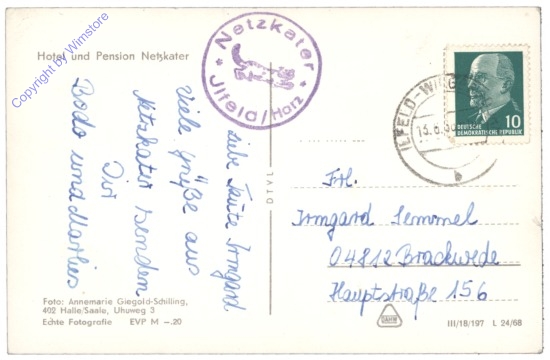 Copyright by Wimstore
Hotel und Pension Netzkater
Netzkater
Jlfeld/Harz
DEUTSCHE
DEMOKRATISCHE REPUBLIK
10
liebe Tante Irmgard
Viele Grüße aus
Netzkater senden
Dir
Bodo und Marlies
DTVL
Frl.
Irmgard Semmel
04812 Brackwede
Hauptstraße 156
Foto: Annemarie Giegold-Schilling,
402 Halle/Saale, Uhuweg 3
Echte Fotografie EVP M –.20
III/18/197 L 24/68